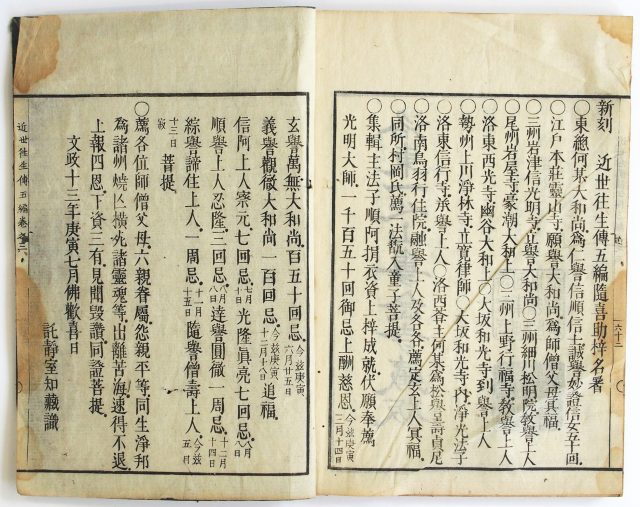 新刻 近世往生傳五編隨喜助梓名署
〇東總何某大和尚為仁譽信順信士誠譽妙諦信女五十回
〇江戸本莊靈山寺願譽大和尚為師僧父母冥福
〇三州岩津信光明寺正譽大和尚〇三州細川松明院教譽上人
〇尾州岩屋寺豪潮大和上〇三州上野行福寺教譽上人
洛東西光寺幽谷大和上〇大坂和光寺到譽上人
〇勢州上川淨林寺立寬律師〇大坂和光寺內淨光法子
〇洛東信行寺承譽上人〇洛西苔主何某為松譽壽貞尼
〇洛南鳥羽行住院融譽上人及各各薦定玄上人冥福
〇同所村岡氏萬二法歡入童子菩提
〇集輯主法子順阿捐衣資上梓成就伏願奉薦
光明大師一千百五十回御忌上酬慈恩今茲庚寅三月十四日
玄譽萬無大和尚百五十回忌今茲庚寅六月廿五日
義譽觀徹大和尚一百回忌今茲庚寅十二月八日追福
信阿上人察元七回忌七月十日光隆眞亮七回忌八月
順譽上人忍隆三回忌八月達譽圓徹一周忌十二月十四日
綜譽諦住上人一周忌十一月隨譽僧壽上人今茲五月
十三日寂菩提
〇薦各位師僧父母六親眷屬怨親平等同生淨邦
為諸州燒亡橫死諸靈魂等出離苦海速得不退
上報四恩下資三有見聞毀讚同證菩提
文政十三年庚寅七月佛歡喜日
託靜室知藏識
近世往生傳五編卷之三
六十三